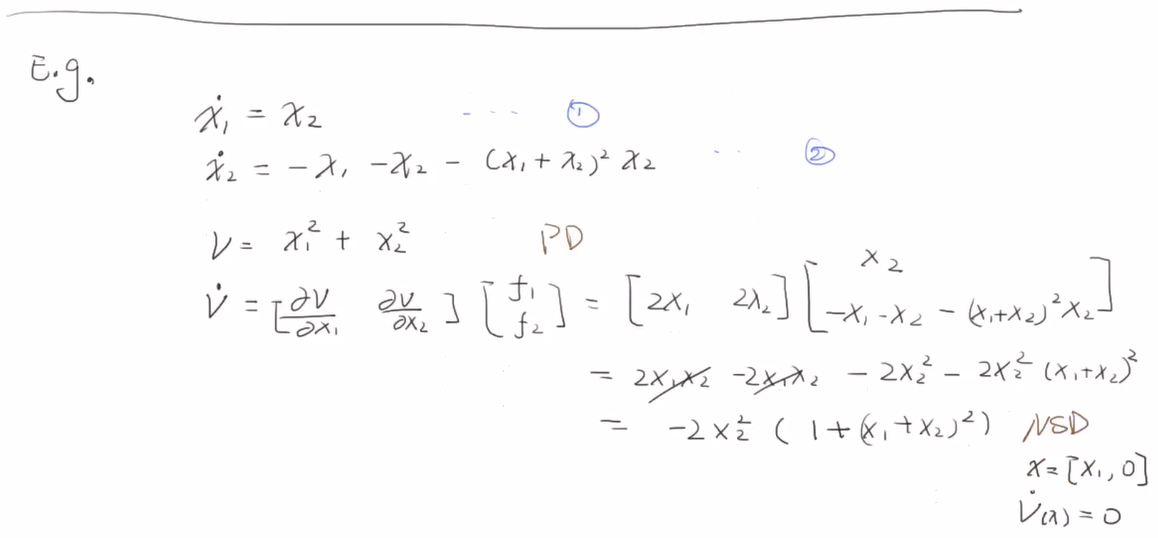 E.g.
ẋ₁ = x₂ ---- ①
ẋ₂ = -x₁ -x₂ - (x₁ + x₂)² x₂ -- ②
V = x₁² + x₂² PD
V̇ = [∂V/∂x₁ ∂V/∂x₂] [f₁ f₂] = [2x₁ 2x₂] [x₂ -x₁ -x₂ - (x₁+x₂)² x₂]
= 2x₁x₂ -2x₁x₂ - 2x₂² - 2x₂² (x₁+x₂)²
= -2x₂² (1+(x₁+x₂)²) NSD
x=[x₁,0]
V̇(x) = 0